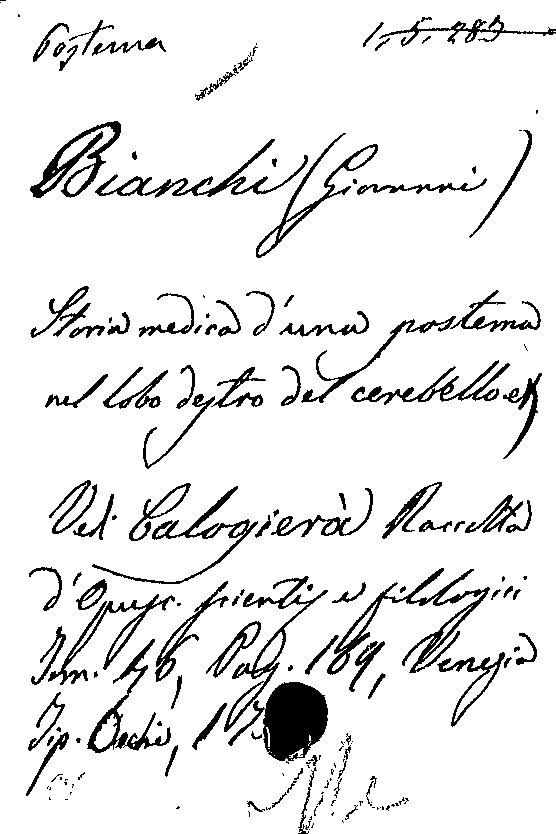 Postema 1, 5, 283
Bianchi (Giovanni)
Storia medica d'una postema
nel lobo destro del cerebello
Vedi Calogierà Raccolta
d'Opusc. scientif e filologici
Tom. 46, Pag. 169, Venezia
Tip. Occhi, 17